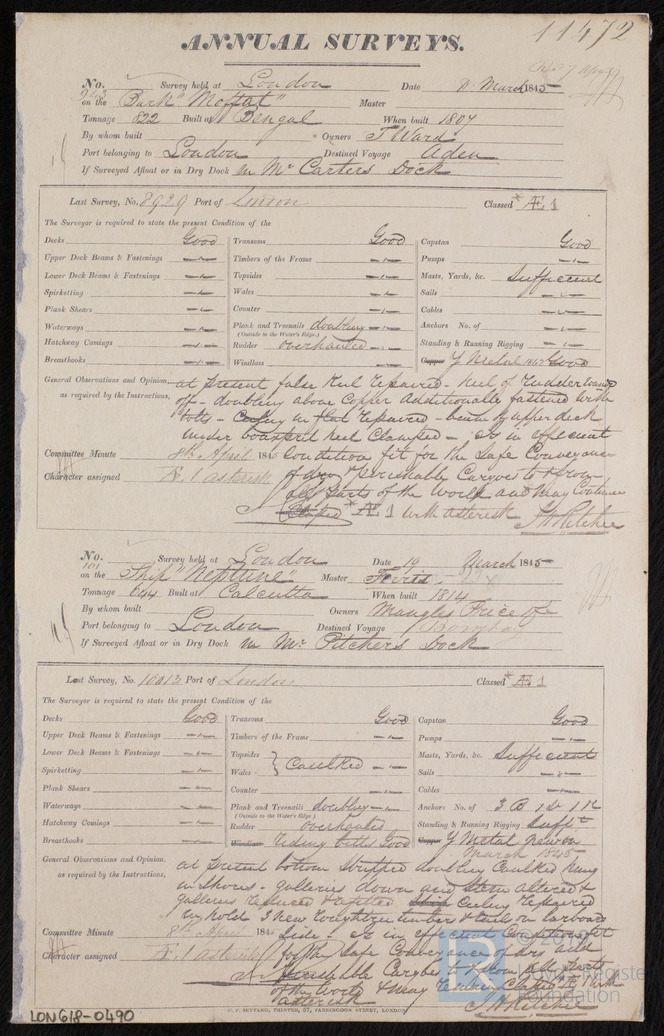 11472
ANNUAL SURVEYS.
No. Survey held at London Date March 1845
on the Bark "Moffat" Master
Tonnage 822 Built at Bengal When built 1807
By whom built Owners T Ward
Port belonging to London Destined Voyage Aden
If Surveyed Afloat or in Dry Dock in Mr Carters Dock
Last Survey, No. 8929 Port of London Classed *Æ 1
The Surveyor is required to state the present Condition of the
Decks Good Transoms Good Capstan Good
Upper Deck Beams & Fastenings Timbers of the Frame Pumps
Lower Deck Beams & Fastenings Topsides Masts, Yards, &c. Sufficient
Spirketting Wales Sails
Plank Shears Counter Cables
Waterways Plank and Treenails doubling Anchors No. of
(Outside to the Water's Edge.)
Hatchway Comings Rudder overhauled Standing & Running Rigging
Breasthooks Windlass Copper Y Metal Good
General Observations and Opinion, at present false Keel repaired - heel of rudder
as required by the Instructions, off - doubling above Copper Additionally fastened with
bolts - repaired - beam of upper deck
under bowsprit heel Clamped - is in efficient
Committee Minute 8th April 1845 Condition fit for the Safe Conveyance
Character assigned Æ 1 asterisk of dry & perishable Cargoes to & from
all parts of the World and May Continue
Classed *Æ 1 with asterisk
No. 101 Survey held at London Date 19 March 1845
on the Ship "Neptune" Master Ferris
Tonnage 644 Built at Calcutta When built 1814
By whom built Owners Mangles Price & Co
Port belonging to London Destined Voyage Bombay
If Surveyed Afloat or in Dry Dock in Mr Pitchers Dock
Last Survey, No. 10013 Port of London Classed *Æ 1
The Surveyor is required to state the present Condition of the
Decks Good Transoms Good Capstan Good
Upper Deck Beams & Fastenings Timbers of the Frame Pumps
Lower Deck Beams & Fastenings Topsides Masts, Yards, &c. Sufficient
Spirketting Wales Caulked Sails
Plank Shears Counter Cables
Waterways Plank and Treenails doubling Anchors No. of 3 B 1 St 1 K
(Outside to the Water's Edge.)
Hatchway Comings Rudder overhauled Standing & Running Rigging Sufft
Breasthooks Windlass Riding bitts Good Copper Y Metal new on
March 1845
General Observations and Opinion, at present bottom stripped doubling Caulked
as required by the Instructions, in Shores - galleries down and Stern altered &
galleries reduced & refitted Ceiling repaired
in hold 3 new timbers on larboard
Committee Minute 8th April 1845 side - is in efficient Condition fit
Character assigned Æ 1 Asterisk for the Safe Conveyance of dry and
Perishable Cargoes to & from All Parts
of the World & May Continue Classed Æ 1 With
asterisk
PRINTER, 57, FARRINGDON STREET, LONDON
LON618-0490
Lloyd's Register
Foundation